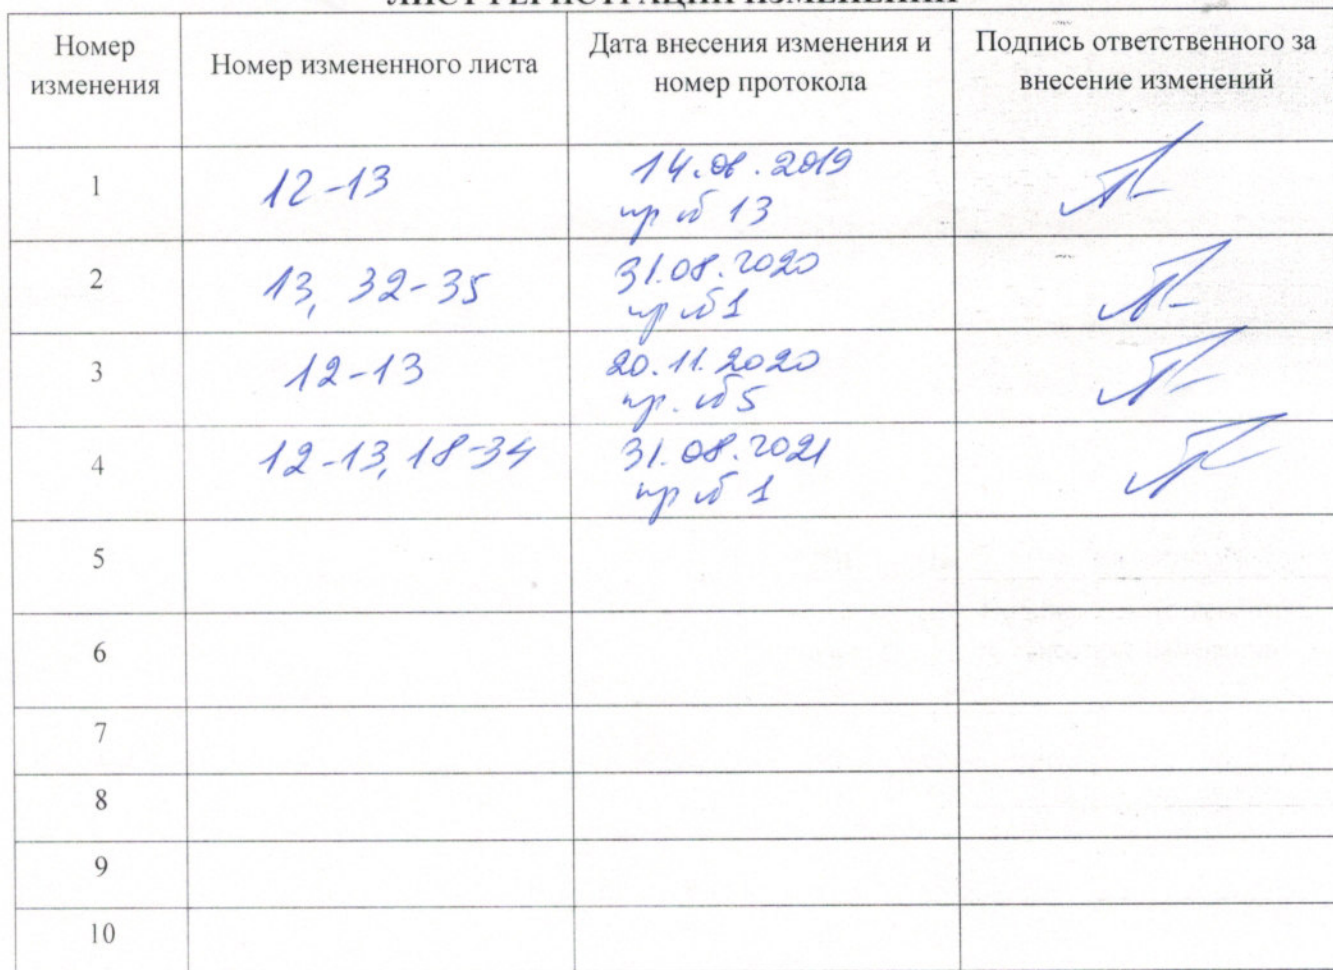 ЛИСТ РЕГИСТРАЦИИ ИЗМЕНЕНИЙ
Номер
изменения
Номер измененного листа
Дата внесения изменения и
номер протокола
Подпись ответственного за
внесение изменений
1
12-13
14.06.2019
пр № 13
2
13, 32-35
31.08.2020
пр №1
3
12-13
20.11.2020
пр. №5
4
12-13, 18-34
31.08.2021
пр № 1
5
6
7
8
9
10